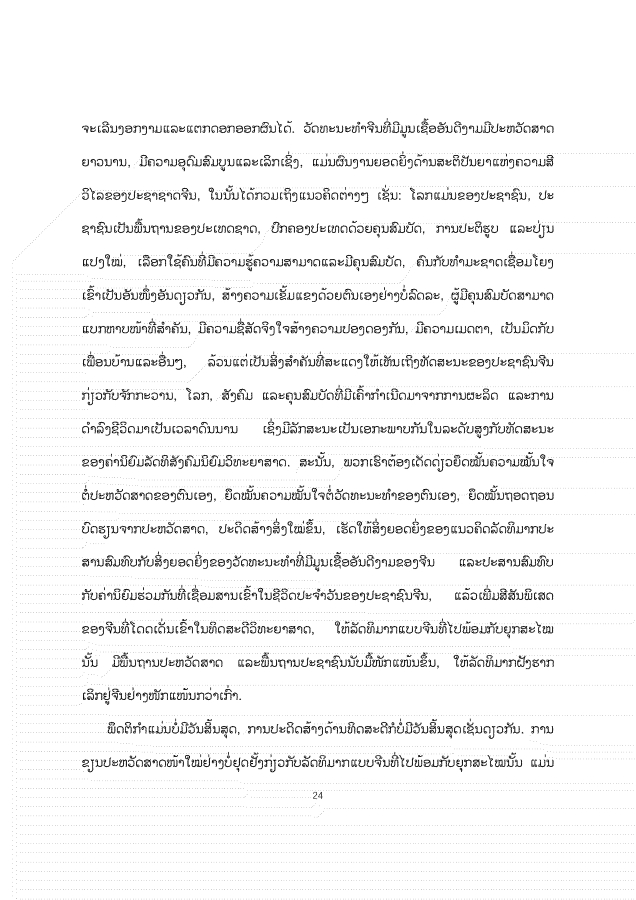 ຈະເລີນງອກງາມແລະແຕກດອກອອກຜົນໄດ້. ວັດທະນະທຳຈີນທີ່ມີມູນເຊື້ອອັນດີງາມມີປະຫວັດສາດ
ຍາວນານ, ມີຄວາມອຸດົມສົມບູນແລະເລິກເຊິ່ງ, ແມ່ນຜົນງານຍອດຍິ່ງດ້ານສະຕິປັນຍາແຫ່ງຄວາມສີ
ວິໄລຂອງປະຊາຊາດຈີນ, ໃນນັ້ນໄດ້ກວມເຖິງແນວຄິດຕ່າງໆ ເຊັ່ນ: ໂລກແມ່ນຂອງປະຊາຊົນ, ປະ
ຊາຊົນເປັນພື້ນຖານຂອງປະເທດຊາດ, ປົກຄອງປະເທດດ້ວຍຄຸນສົມບັດ, ການປະຕິຮູບ ແລະປ່ຽນ
ແປງໃໝ່, ເລືອກໃຊ້ຄົນທີ່ມີຄວາມຮູ້ຄວາມສາມາດແລະມີຄຸນສົມບັດ, ຄົນກັບທຳມະຊາດເຊື່ອມໂຍງ
ເຂົ້າເປັນອັນໜຶ່ງອັນດຽວກັນ, ສ້າງຄວາມເຂັ້ມແຂງດ້ວຍຕົນເອງຢ່າງບໍ່ລົດລະ, ຜູ້ມີຄຸນສົມບັດສາມາດ
ແບກຫາບໜ້າທີ່ສຳຄັນ, ມີຄວາມຊື່ສັດຈິງໃຈສ້າງຄວາມປອງດອງກັນ, ມີຄວາມເມດຕາ, ເປັນມິດກັບ
ເພື່ອນບ້ານແລະອື່ນໆ, ລ້ວນແຕ່ເປັນສິ່ງສຳຄັນທີ່ສະແດງໃຫ້ເຫັນເຖິງທັດສະນະຂອງປະຊາຊົນຈີນ
ກ່ຽວກັບຈັກກະວານ, ໂລກ, ສັງຄົມ ແລະຄຸນສົມບັດທີ່ມີເຄົ້າກຳເນີດມາຈາກການຜະລິດ ແລະການ
ດຳລົງຊີວິດມາເປັນເວລາດົນນານ ເຊິ່ງມີລັກສະນະເປັນເອກະພາບກັນໃນລະດັບສູງກັບທັດສະນະ
ຂອງຄ່ານິຍົມລັດທິສັງຄົມນິຍົມວິທະຍາສາດ. ສະນັ້ນ, ພວກເຮົາຕ້ອງເດັດດ່ຽວຍຶດໝັ້ນຄວາມໝັ້ນໃຈ
ຕໍ່ປະຫວັດສາດຂອງຕົນເອງ, ຍຶດໝັ້ນຄວາມໝັ້ນໃຈຕໍ່ວັດທະນະທຳຂອງຕົນເອງ, ຍຶດໝັ້ນຖອດຖອນ
ບົດຮຽນຈາກປະຫວັດສາດ, ປະດິດສ້າງສິ່ງໃໝ່ຂຶ້ນ, ເຮັດໃຫ້ສິ່ງຍອດຍິ່ງຂອງແນວຄິດລັດທິມາກປະ
ສານສົມທົບກັບສິ່ງຍອດຍິ່ງຂອງວັດທະນະທຳທີ່ມີມູນເຊື້ອອັນດີງາມຂອງຈີນ ແລະປະສານສົມທົບ
ກັບຄ່ານິຍົມຮ່ວມກັນທີ່ເຊື່ອມສານເຂົ້າໃນຊີວິດປະຈຳວັນຂອງປະຊາຊົນຈີນ, ແລ້ວເພີ່ມສີສັນພິເສດ
ຂອງຈີນທີ່ໂດດເດັ່ນເຂົ້າໃນທິດສະດີວິທະຍາສາດ, ໃຫ້ລັດທິມາກແບບຈີນທີ່ໄປພ້ອມກັບຍຸກສະໄໝ
ນັ້ນ ມີພື້ນຖານປະຫວັດສາດ ແລະພື້ນຖານປະຊາຊົນນັບມື້ໜັກແໜ້ນຂຶ້ນ, ໃຫ້ລັດທິມາກຝັງຮາກ
ເລິກຢູ່ຈີນຢ່າງໜັກແໜ້ນກວ່າເກົ່າ.
ພຶດຕິກຳແມ່ນບໍ່ມີວັນສິ້ນສຸດ, ການປະດິດສ້າງດ້ານທິດສະດີກໍບໍ່ມີວັນສິ້ນສຸດເຊັ່ນດຽວກັນ. ການ
ຂຽນປະຫວັດສາດໜ້າໃໝ່ຢ່າງບໍ່ຢຸດຢັ້ງກ່ຽວກັບລັດທິມາກແບບຈີນທີ່ໄປພ້ອມກັບຍຸກສະໄໝນັ້ນ ແມ່ນ
24